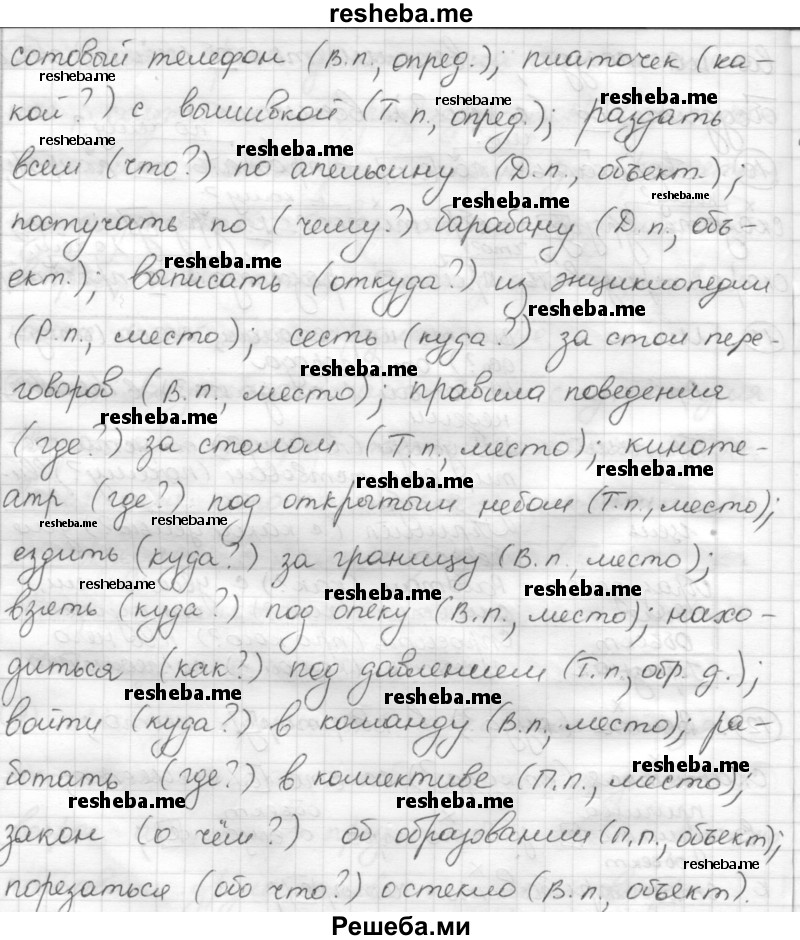 resheba.me
сотовый телефон (В.п., опред.); платочек (ка-
resheba.me
кой?) с вышивкой (Т.п., опред.); раздать
resheba.me resheba.me
resheba.me resheba.me
всем (что?) по апельсину (Д.п., объект.);
resheba.me resheba.me
постучать по (чему?) барабану (Д.п., объ-
resheba.me
ект.); выписать (откуда?) из энциклопедии
resheba.me
(Р.п., место); сесть (куда?) за стол пере-
resheba.me
говоров (В.п., место); правила поведения
resheba.me
(где?) за столом (Т.п., место); киноте-
resheba.me resheba.me
атр (где?) под открытым небом (Т.п., место);
resheba.me resheba.me
ездить (куда?) за границу (В.п., место);
resheba.me resheba.me resheba.me
взять (куда?) под опеку (В.п., место); нахо-
диться (как?) под давлением (Т.п., обр. д.);
resheba.me resheba.me
войти (куда?) в команду (В.п., место); ра-
resheba.me
ботать (где?) в коллективе (П.п., место);
resheba.me resheba.me
закон (о чём?) об образовании (П.п., объект);
resheba.me
порезаться (обо что?) о стекло (В.п., объект).
Решеба.ми